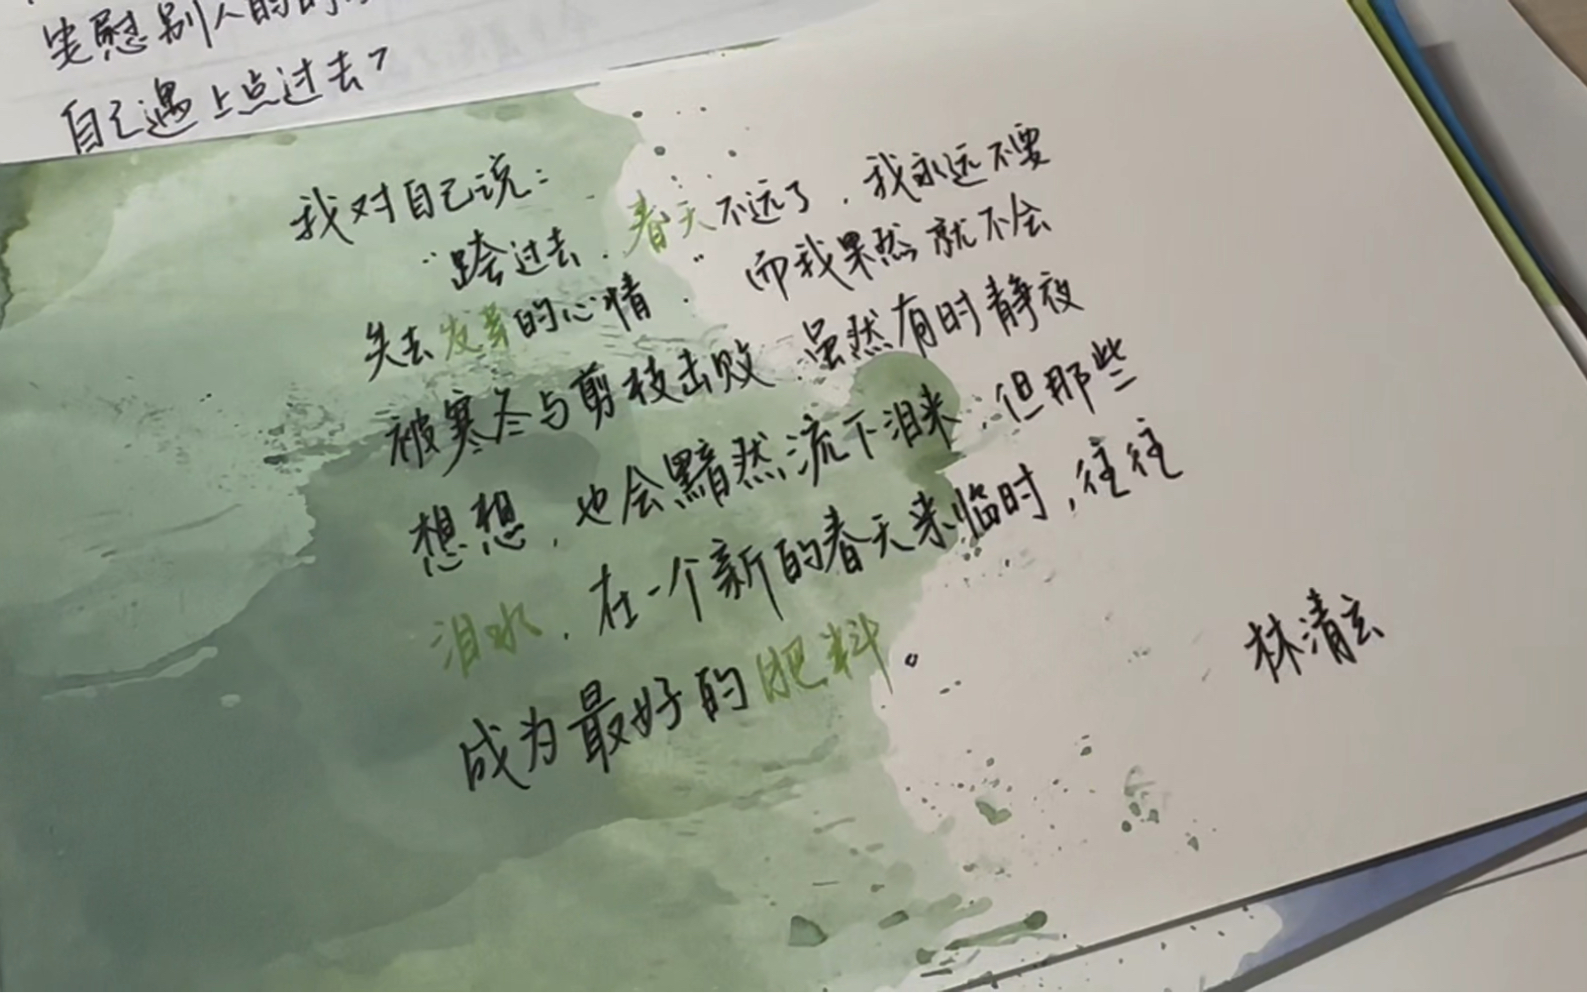 安慰别人的时
自己遇上点过去?
我对自己说:
“跨过去,春天不远了,我永远不要
失去发芽的心情.”而我果然就不会
被寒冬与剪枝击败.虽然有时静夜
想想,也会黯然流下泪来,但那些
泪水,在一个新的春天来临时,往往
成为最好的肥料。
林清玄